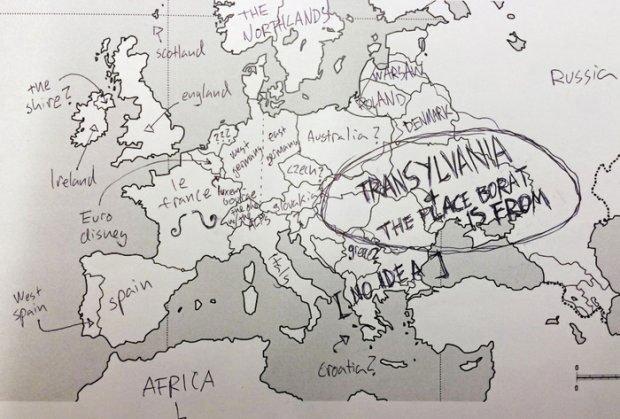 THE
NORTHLANDS!
scotland
the
shire?
england
Ireland
WARSAW
POLAND
DENMARK
Russia
???
west
germany
east
germany
Australia?
czech?
TRANSYLVANIA
+
THE PLACE BORAT
IS FROM
le
france
Euro
disney
slovakia
Italy
greece
[NO IDEA]
West
spain
spain
Croatia?
AFRICA